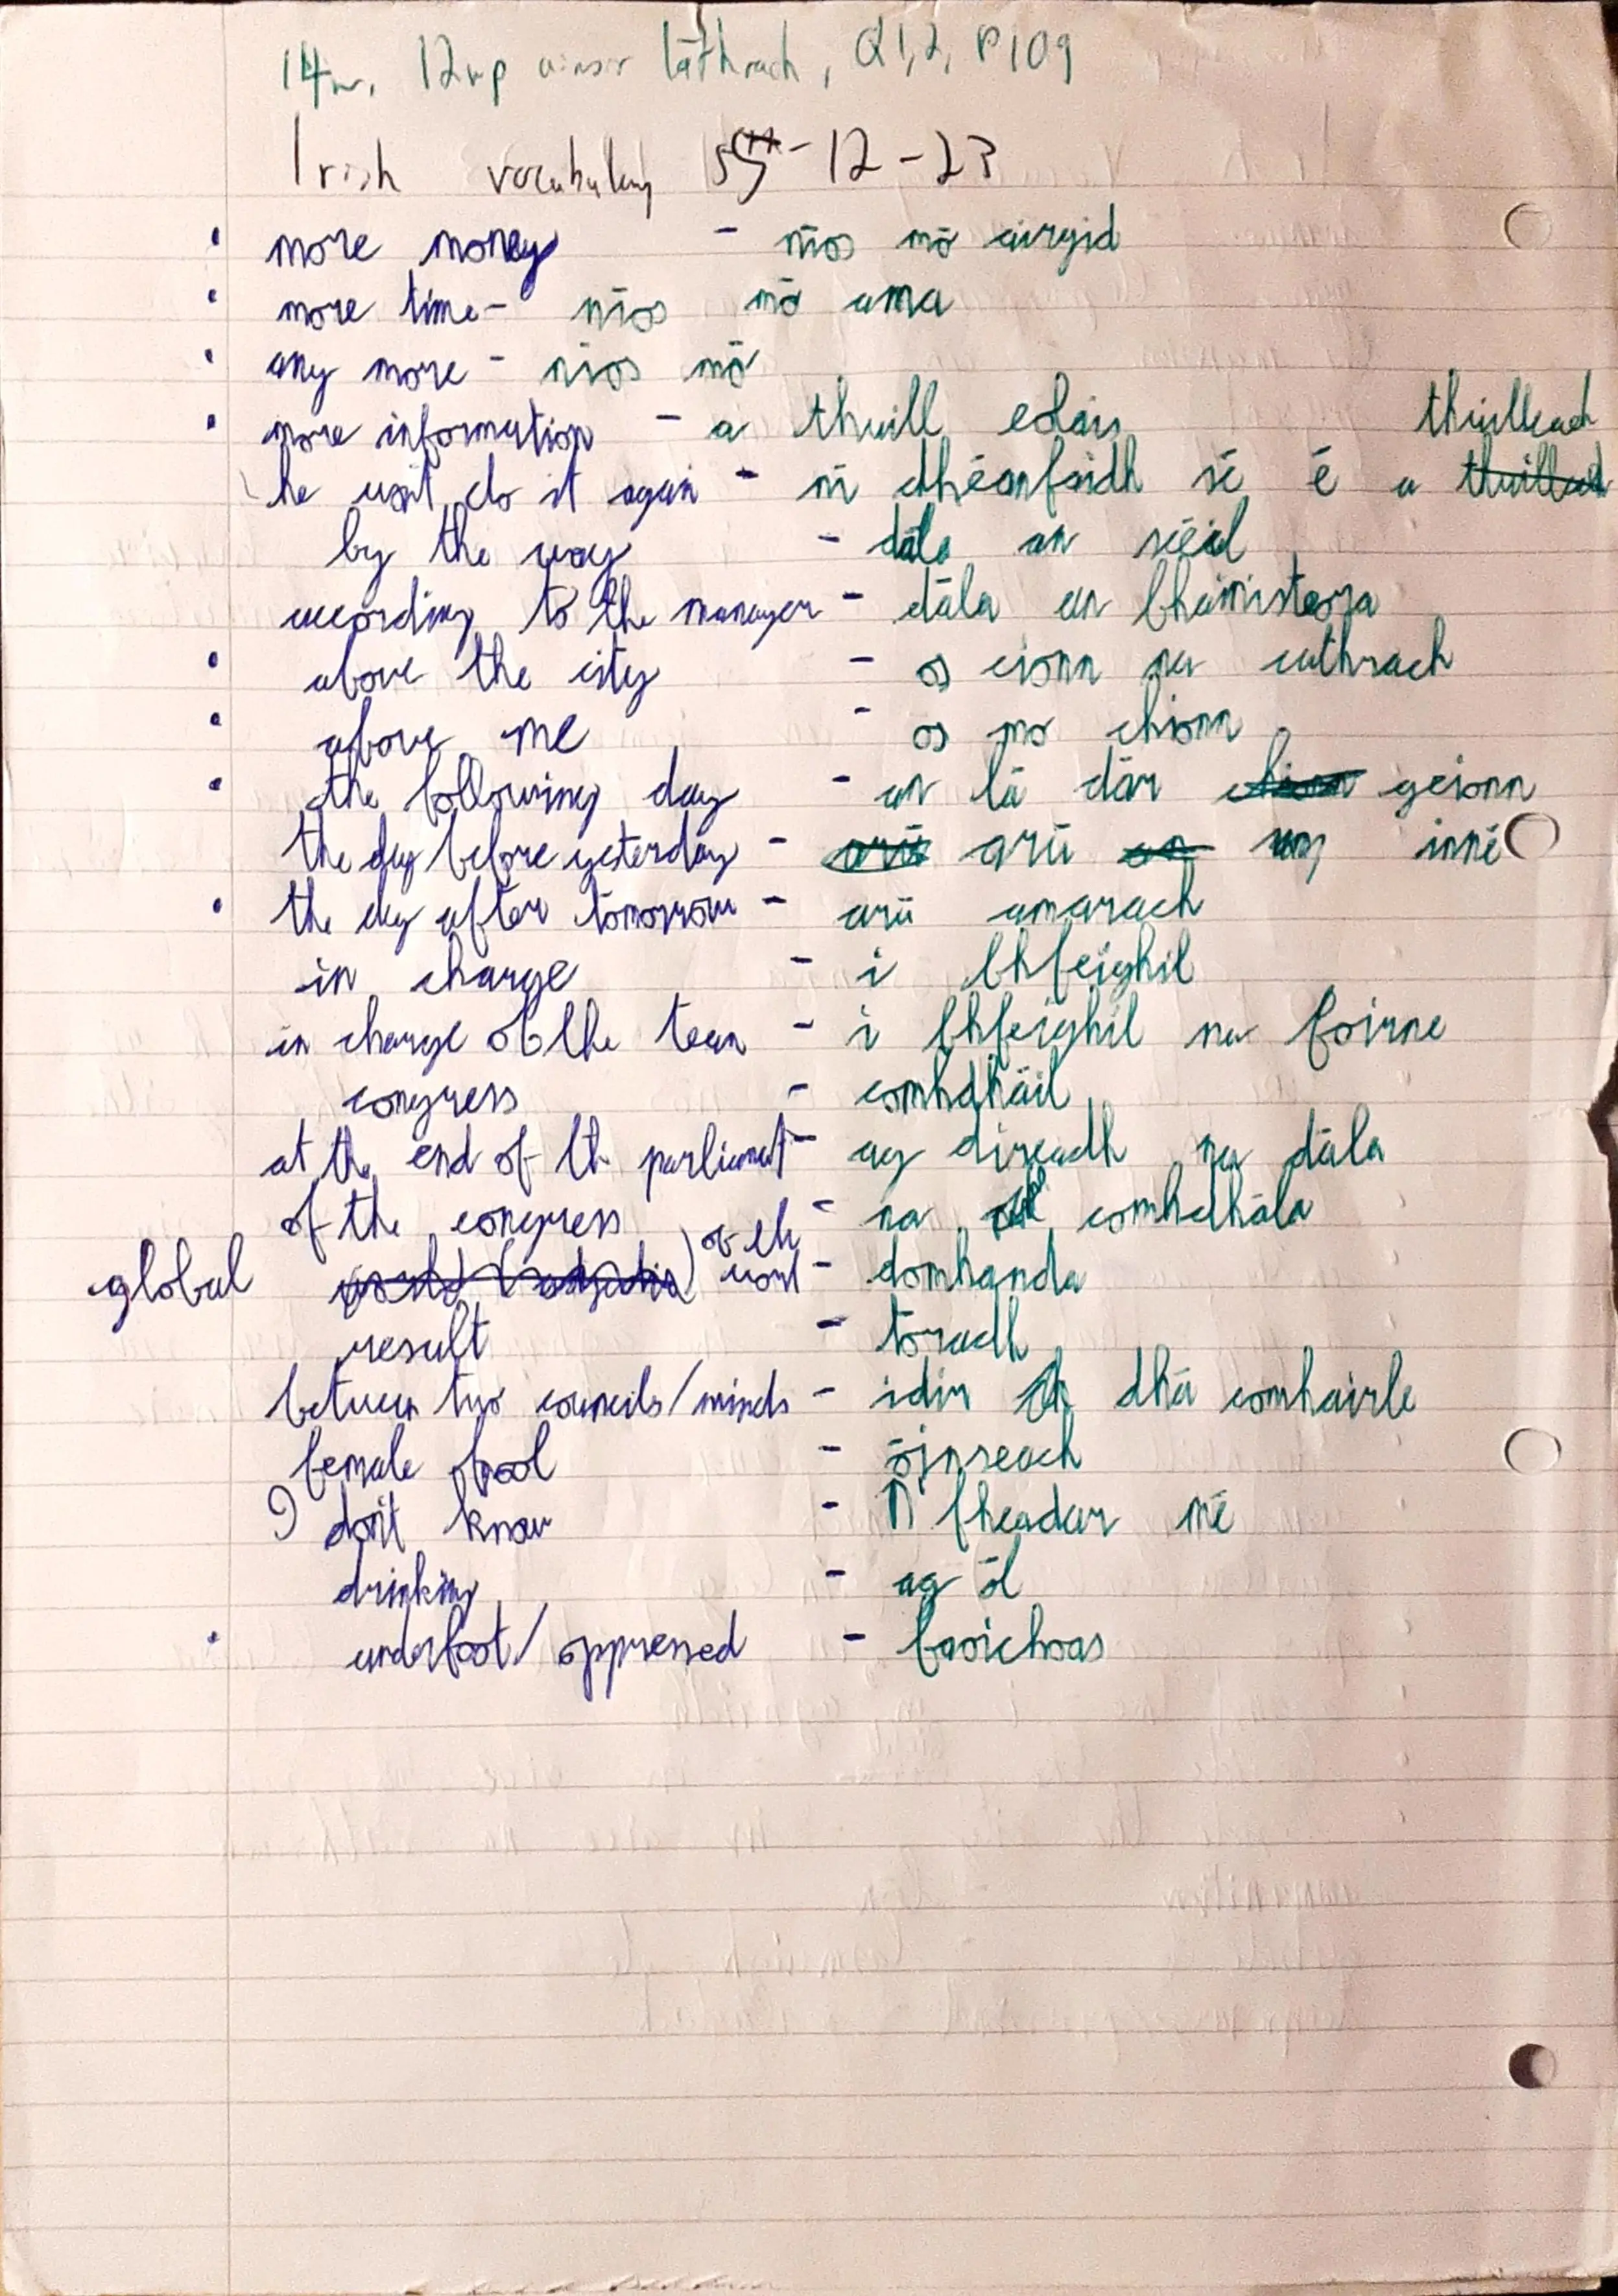 14n. 12np aimsir láthrach, Q1,2, P109
Irish vocabulary 5th-12-23
more money - níos mó airgid
more time - níos mó ama
any more - níos mó
more information - a thuill eolais thuilleadh
he won't do it again - ní dhéanfaidh sé é a
by the way - dála an scéil
according to the manager - dála an bhainisteora
above the city - os cionn na cathrach
above me - os mo chionn
the following day - an lá dár gcionn
the day before yesterday - arú inné
the day after tomorrow - arú amarach
in charge - i bhfeighil
in charge of the team - i bhfeighil na foirne
congress - comhdháil
at the end of th parliament - ag díreadh na dála
of the congress - na comhdhála
global - domhanda
result - toradh
between two councils/minds - idir dhá comhairle
female fool - óinseach
I don't know - n fheadar mé
drinking - ag ól
underfoot/oppressed - faoichoas